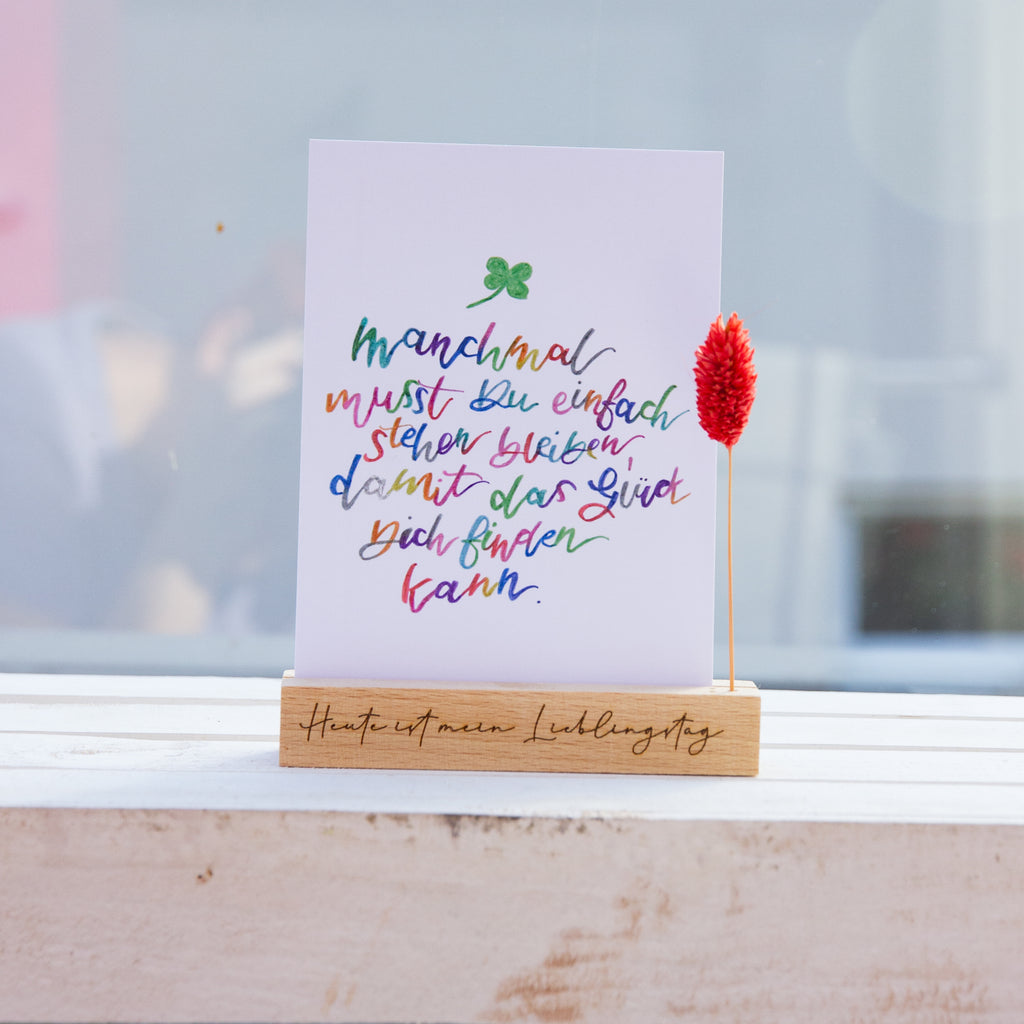 Manchmal
musst Du einfach
stehen bleiben,
damit das Glück
Dich finden
kann.
Heute ist mein Lieblingstag